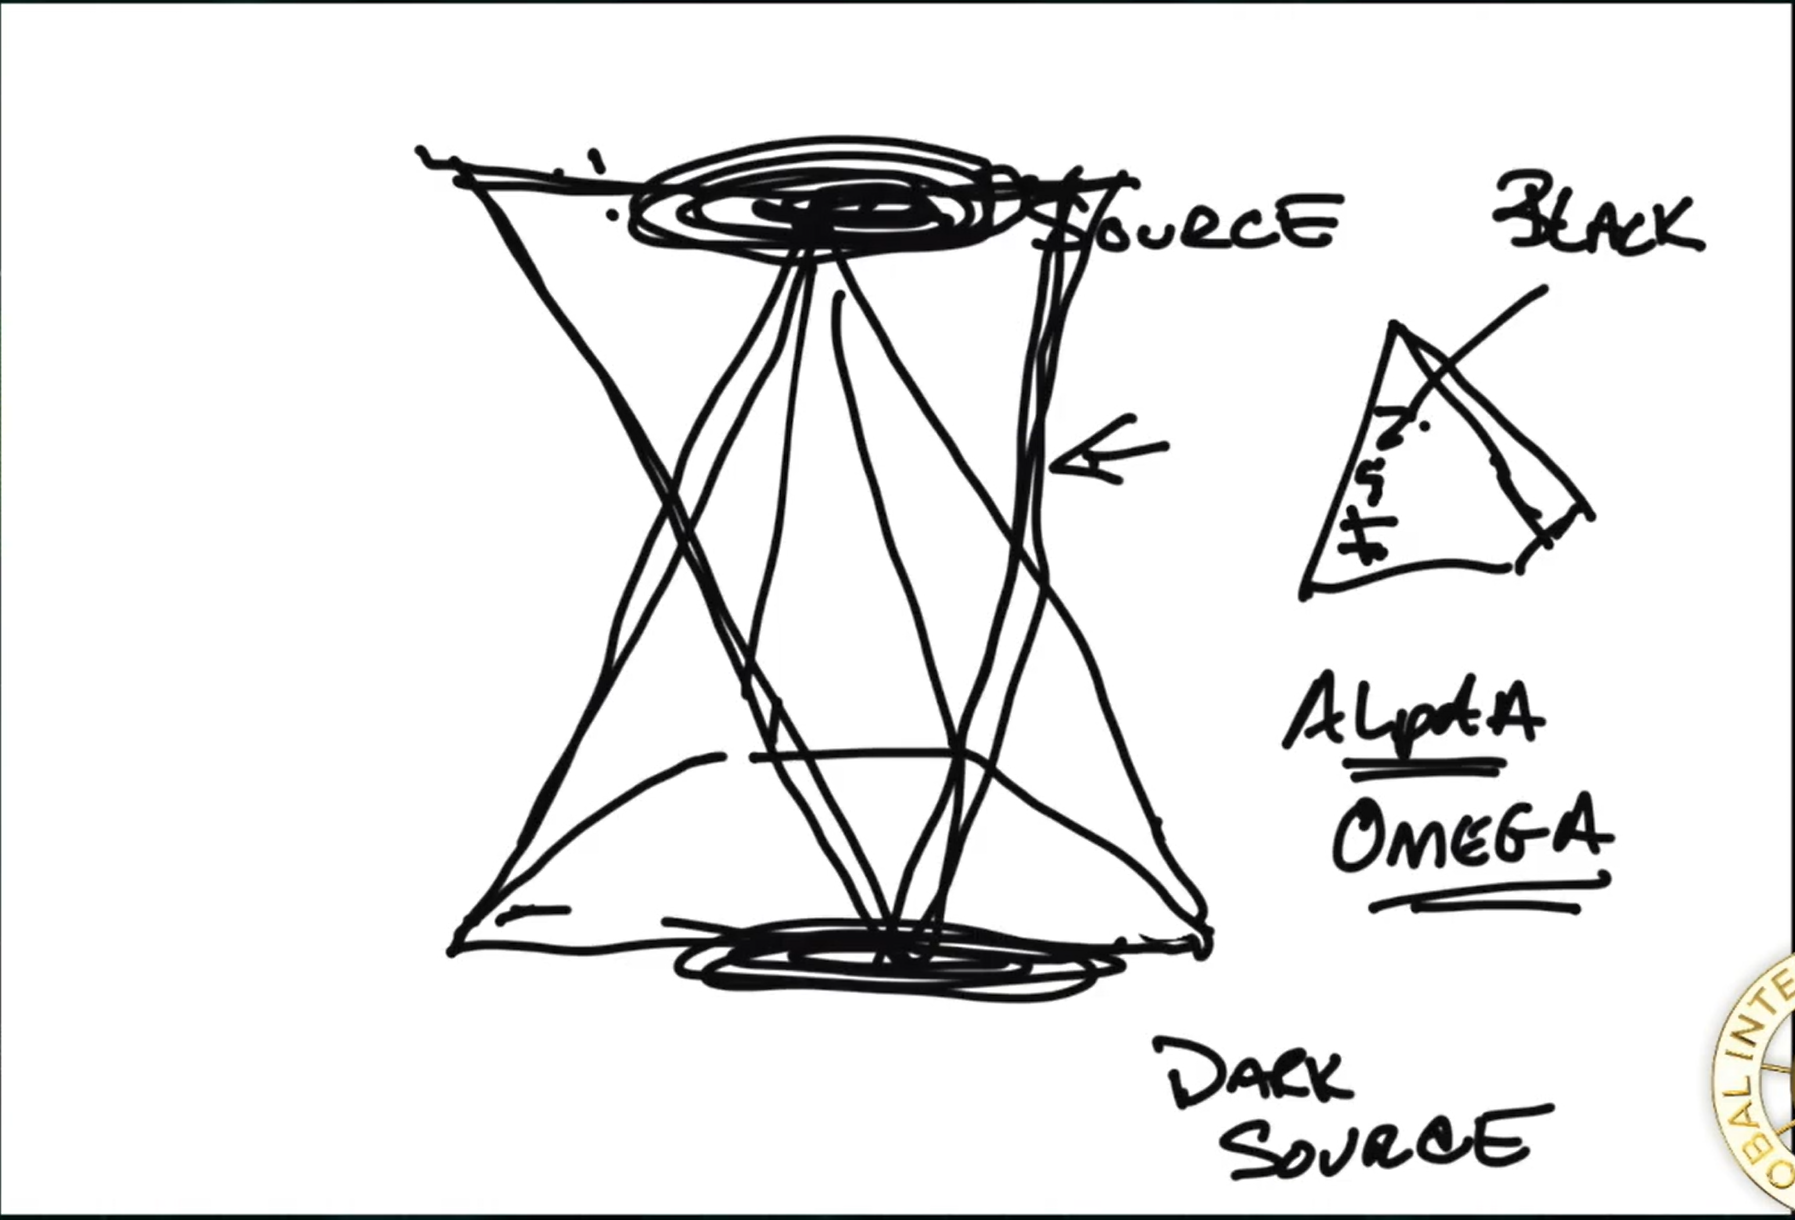 SOURCE
BLACK
ALphA
OMEGA
DARK
SOURCE
OBAL INTE